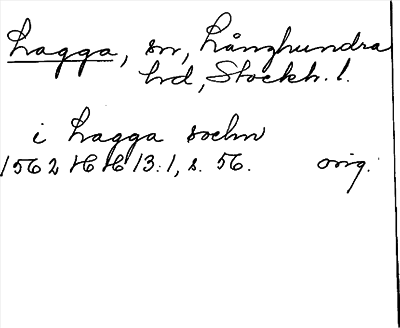 Lagga, sn, Långhundra
hd, Stockh. l.
i Lagga sochn
1562 HH 13:1, s. 56. orig.